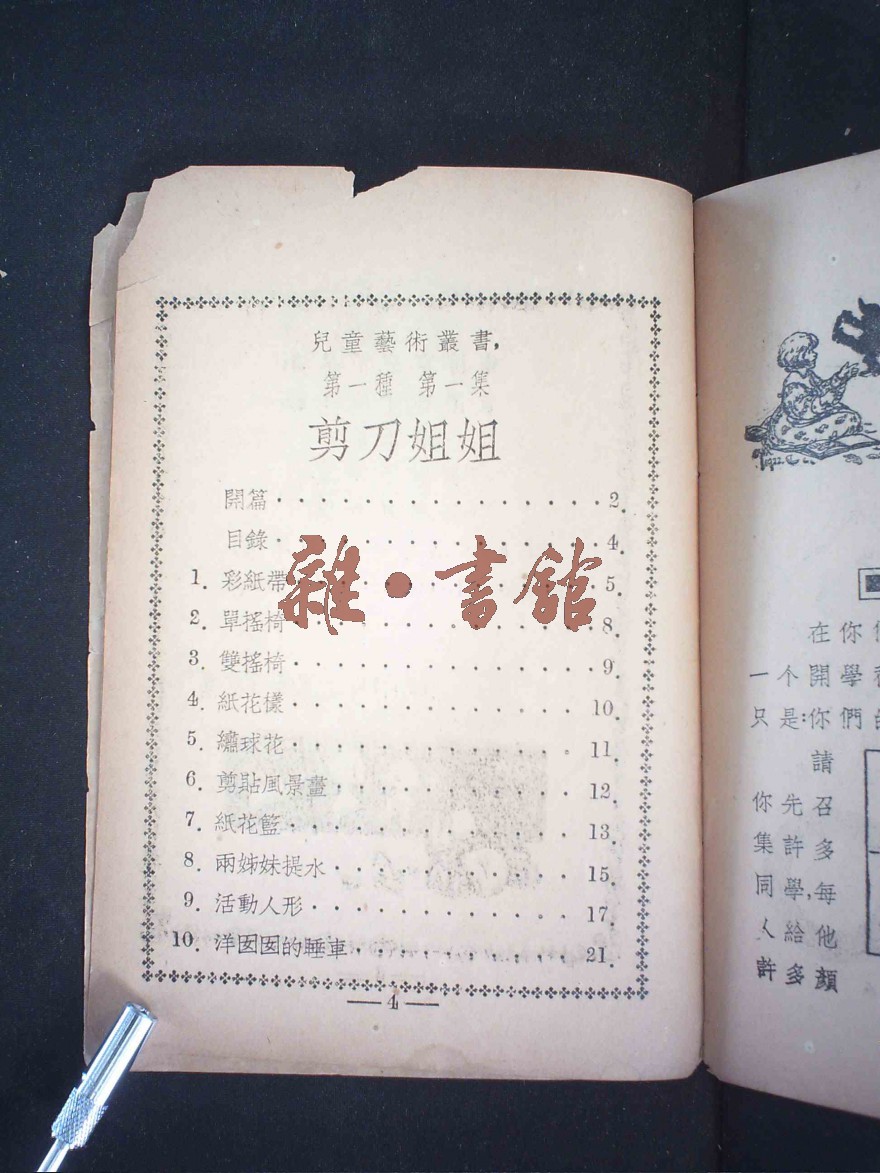 兒童藝術叢書,
第一種 第一集
剪刀姐姐
開篇 · · · · · · · · · · · · · · · 2.
目錄 · · · · · · · · · · · · · · · 4.
1. 彩紙帶 · · · · · · · · · · · · · · 5.
2. 單搖椅 · · · · · · · · · · · · · · 8.
3. 雙搖椅 · · · · · · · · · · · · · · 9.
4. 紙花樣 · · · · · · · · · · · · · · 10.
5. 繡球花 · · · · · · · · · · · · · · 11.
6. 剪貼風景畫 · · · · · · · · · · · · 12.
7. 紙花籃 · · · · · · · · · · · · · · 13.
8. 兩姊妹提水 · · · · · · · · · · · · 15.
9. 活動人形 · · · · · · · · · · · · · 17.
10. 洋囡囡的睡車 · · · · · · · · · · · 21.
—4—
雜·書館
1922
在你
一个開學
只是:你們
請
你先召
集許多
同學,每
人給他
許多顏